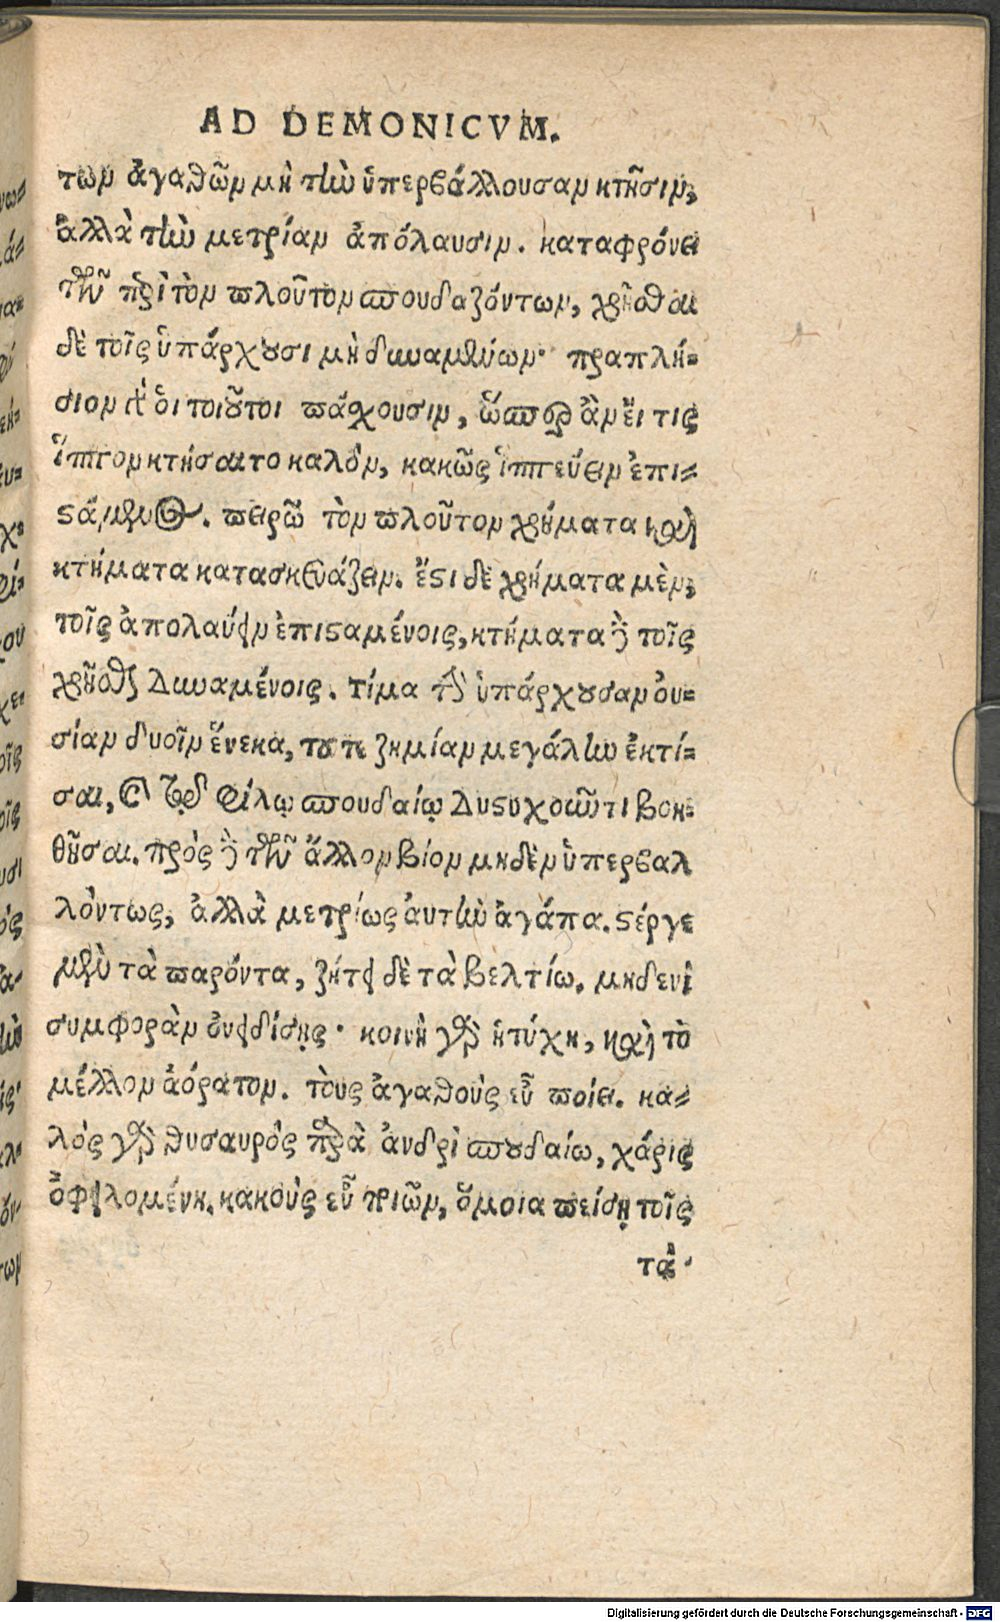 AD DEMONICVM.
των ἀγαθῶν μὴ τὴν ὑπερβάλλουσαν κτῆσιν,
ἀλλὰ τὴν μετρίαν ἀπόλαυσιν. καταφρόνει
τῶν περὶ τὸν πλοῦτον σπουδαζόντων, χρῆσθαι
δὲ τοῖς ὑπάρχουσι μὴ δυναμένων· παραπλή=
σιον γὰρ ὁι τοιοῦτοι πάσχουσιν, ὥσπερ ἂν ἔι τις
ἵππον κτήσαιτο καλὸν, κακῶς ἱππεύειν ἐπι=
στάμενος. πειρῶ τὸν πλοῦτον χρήματα καὶ
κτήματα κατασκευάζειν. ἔστι δὲ χρήματα μὲν,
τοῖς ἀπολαύειν ἐπισταμένοις, κτήματα δὲ τοῖς
χρῆσθαι δυναμένοις. τίμα τὴν ὑπάρχουσαν ὀυ=
σίαν δυοῖν ἕνεκα, τοῦ τε ζημίαν μεγάλην ἐκτί=
σαι, καὶ τοῦ φίλῳ σπουδαίῳ δυστυχοῦντι βοη=
θῆσαι. πρὸς δὲ τὸν ἄλλον βίον μηδὲν ὑπερβαλ
λόντως, ἀλλὰ μετρίως ἀυτὴν ἀγάπα. στέργε
μὲν τὰ παρόντα, ζήτει δὲ τὰ βελτίω. μηδενὶ
συμφορὰν ὀνειδίσῃς· κοινὴ γὰρ ἡ τύχη, καὶ τὸ
μέλλον ἀόρατον. τοὺς ἀγαθοὺς εὖ ποίει. κα=
λὸς γὰρ θυσαυρὸς παρὰ ἀνδρὶ σπουδαίω, χάρις
ὀφειλομένη. κακοὺς εὖ ποιῶν, ὅμοια πείσῃ τοῖς
τὰς